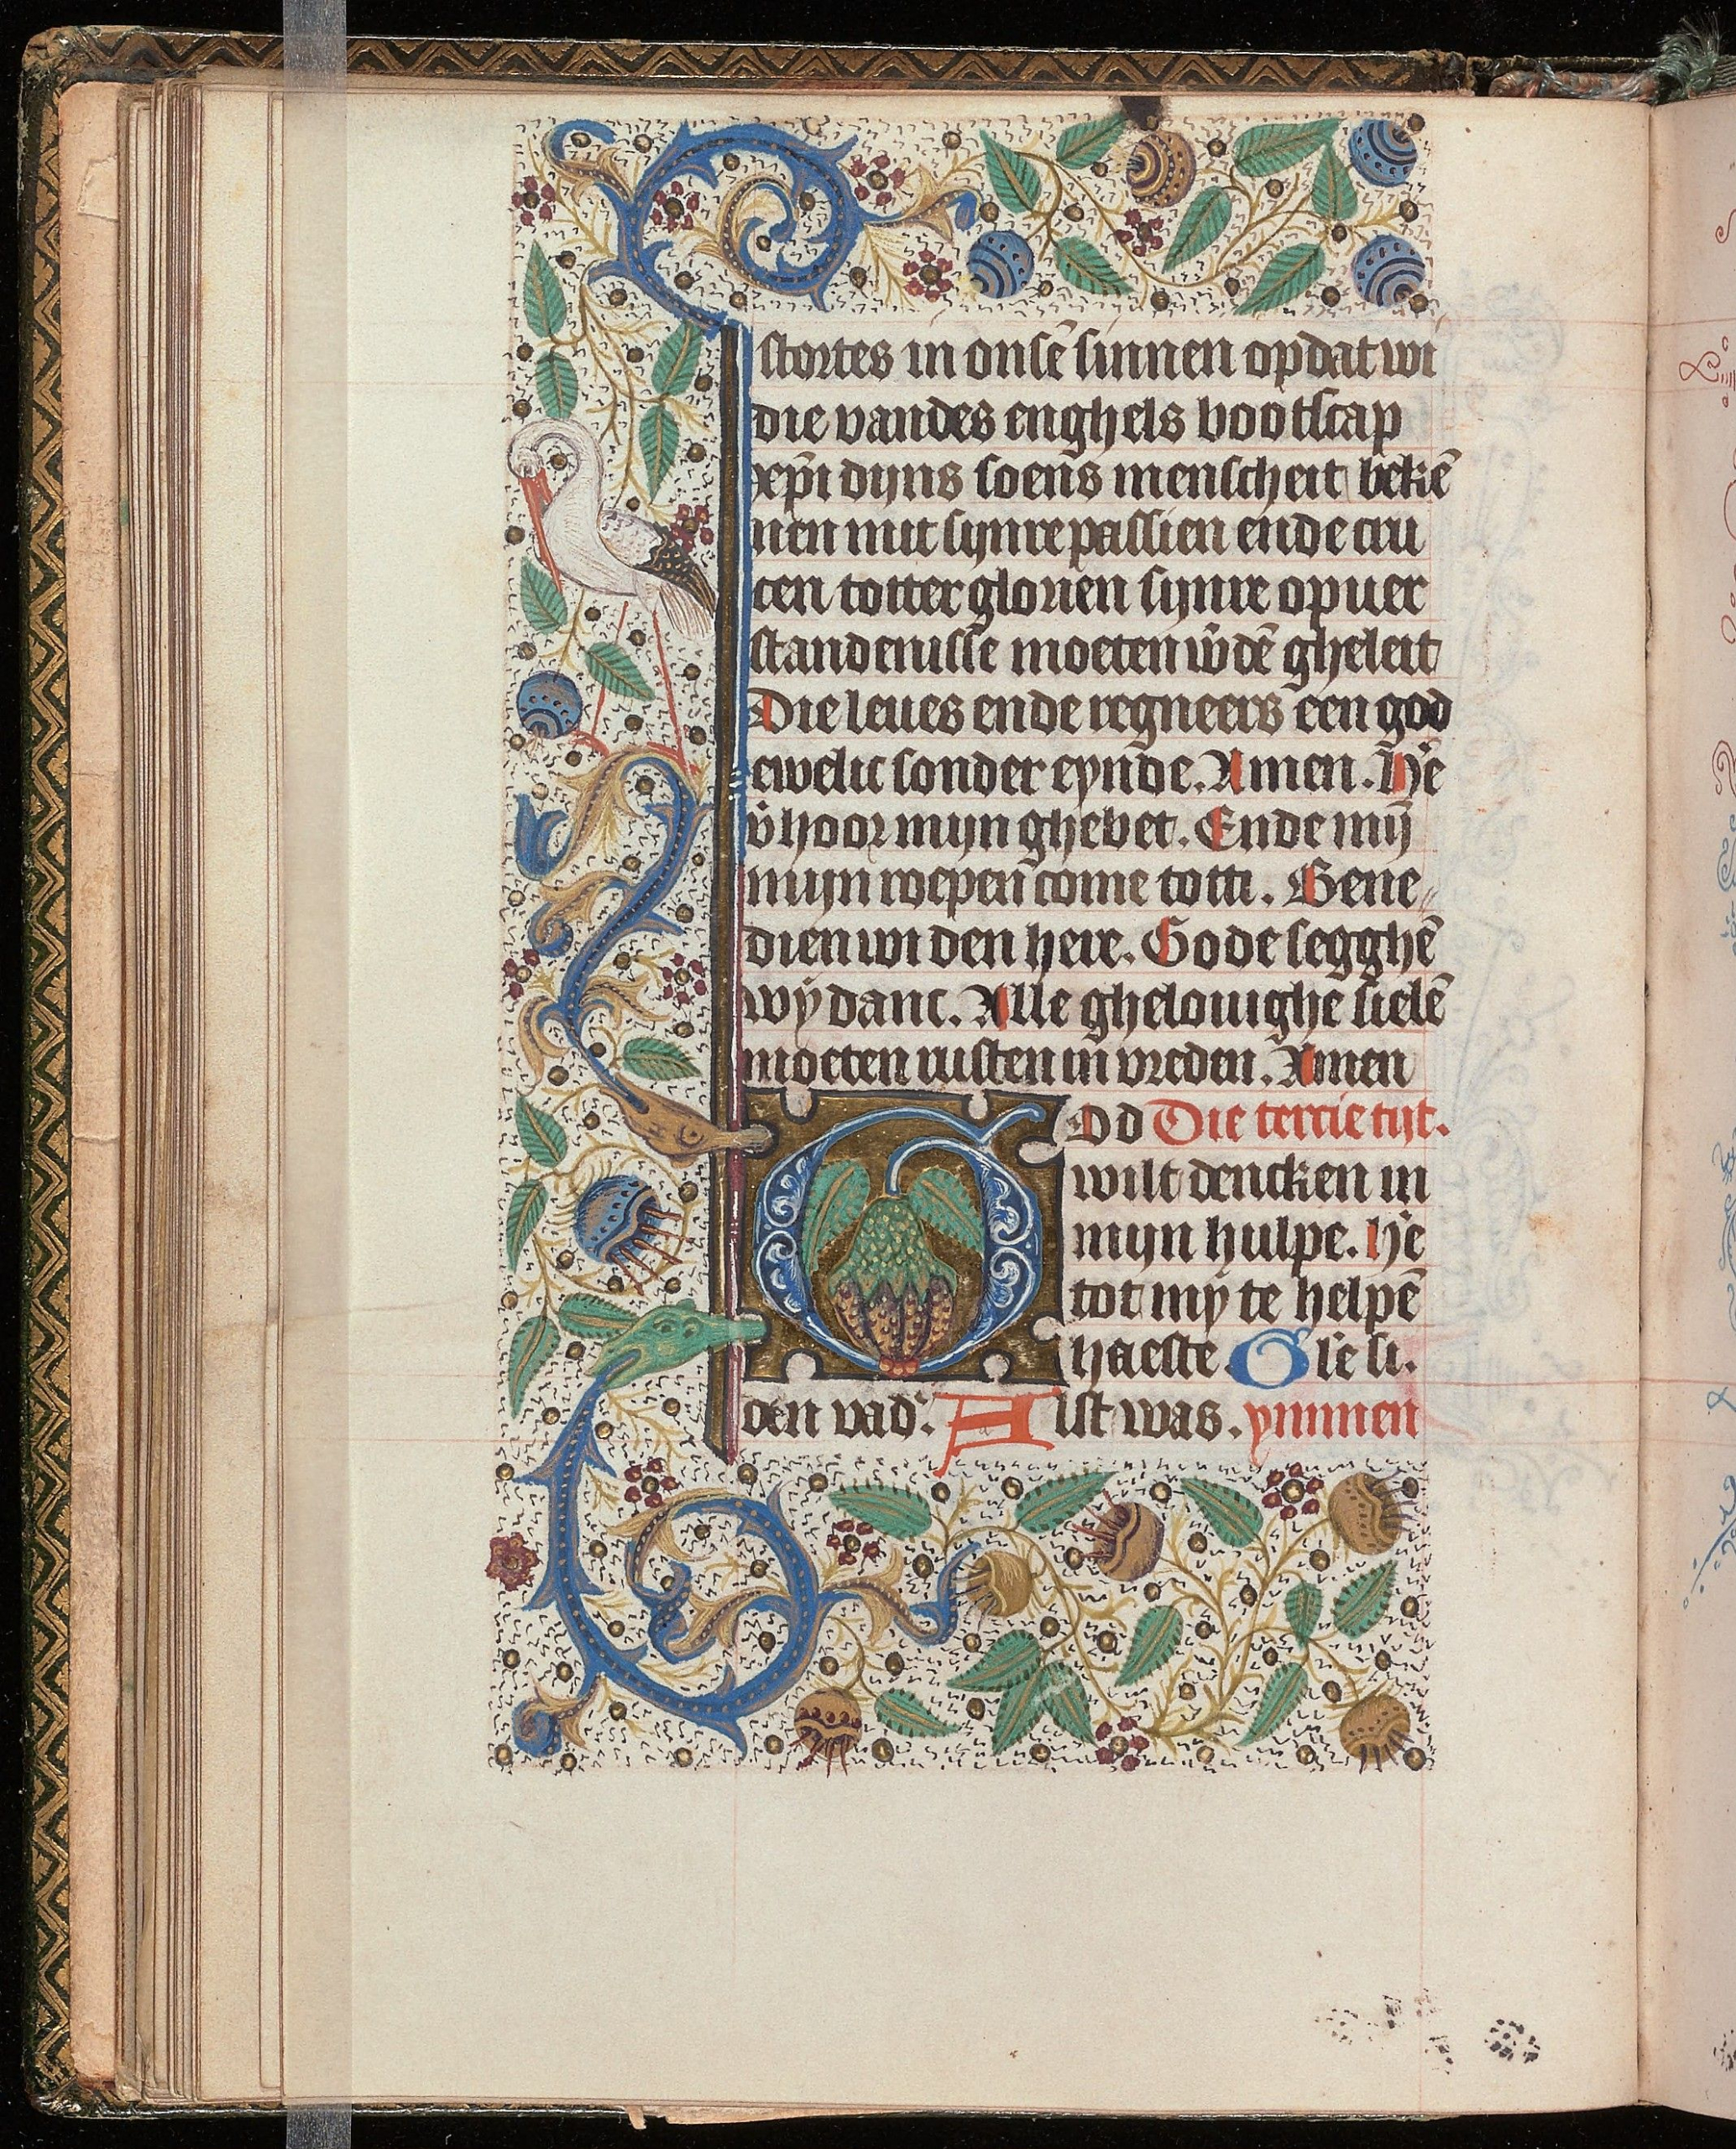 stortes in onsē sinnen opdat wi
die vandes enghels bootscap
xp̄i dijns soens menscheit bekē
nen mit sijnre passien ende cru
cen totter glorien sijnre opuer
standenisse moeten w̄dē gheleit
Die leues ende regneers een god
ewelic sonder eynde. Amen. He͛
v̄hoor mijn ghebet. Ende mijn
mijn roepen come totti. Bene⸗
dien wi den here. Gode segghē
wÿ danc. Alle ghelouighe sielē
moeten rusten in vreden. Amen
God Die tercie tijt.
wilt dencken in
mijn hulpe. He͛
tot mÿ te helpē
haeste. Gl'e si.
den vad͛. Alst was. ymmen